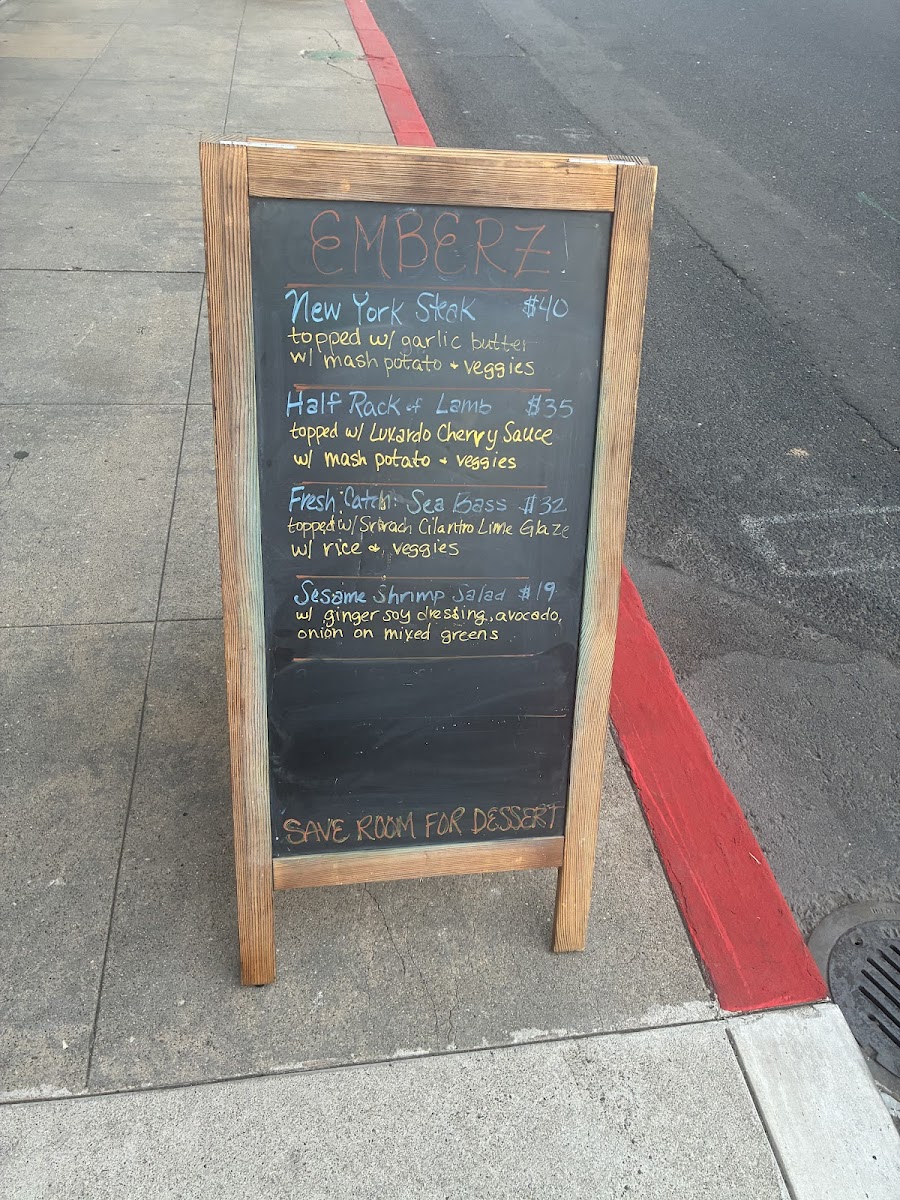 EMBERZ!
New York Steak $40
topped w/ garlic butter
w/ mash potato + veggies
Half Rack of Lamb $35
topped w/ Luxardo Cherry Sauce
w/ mash potato + veggies
Fresh Catch: Sea Bass $32
topped w/ Srirach Cilantro Lime Glaze
w/ rice & veggies
Sesame Shrimp Salad $19
w/ ginger soy dressing, avocado,
onion on mixed greens
SAVE ROOM FOR DESSERT